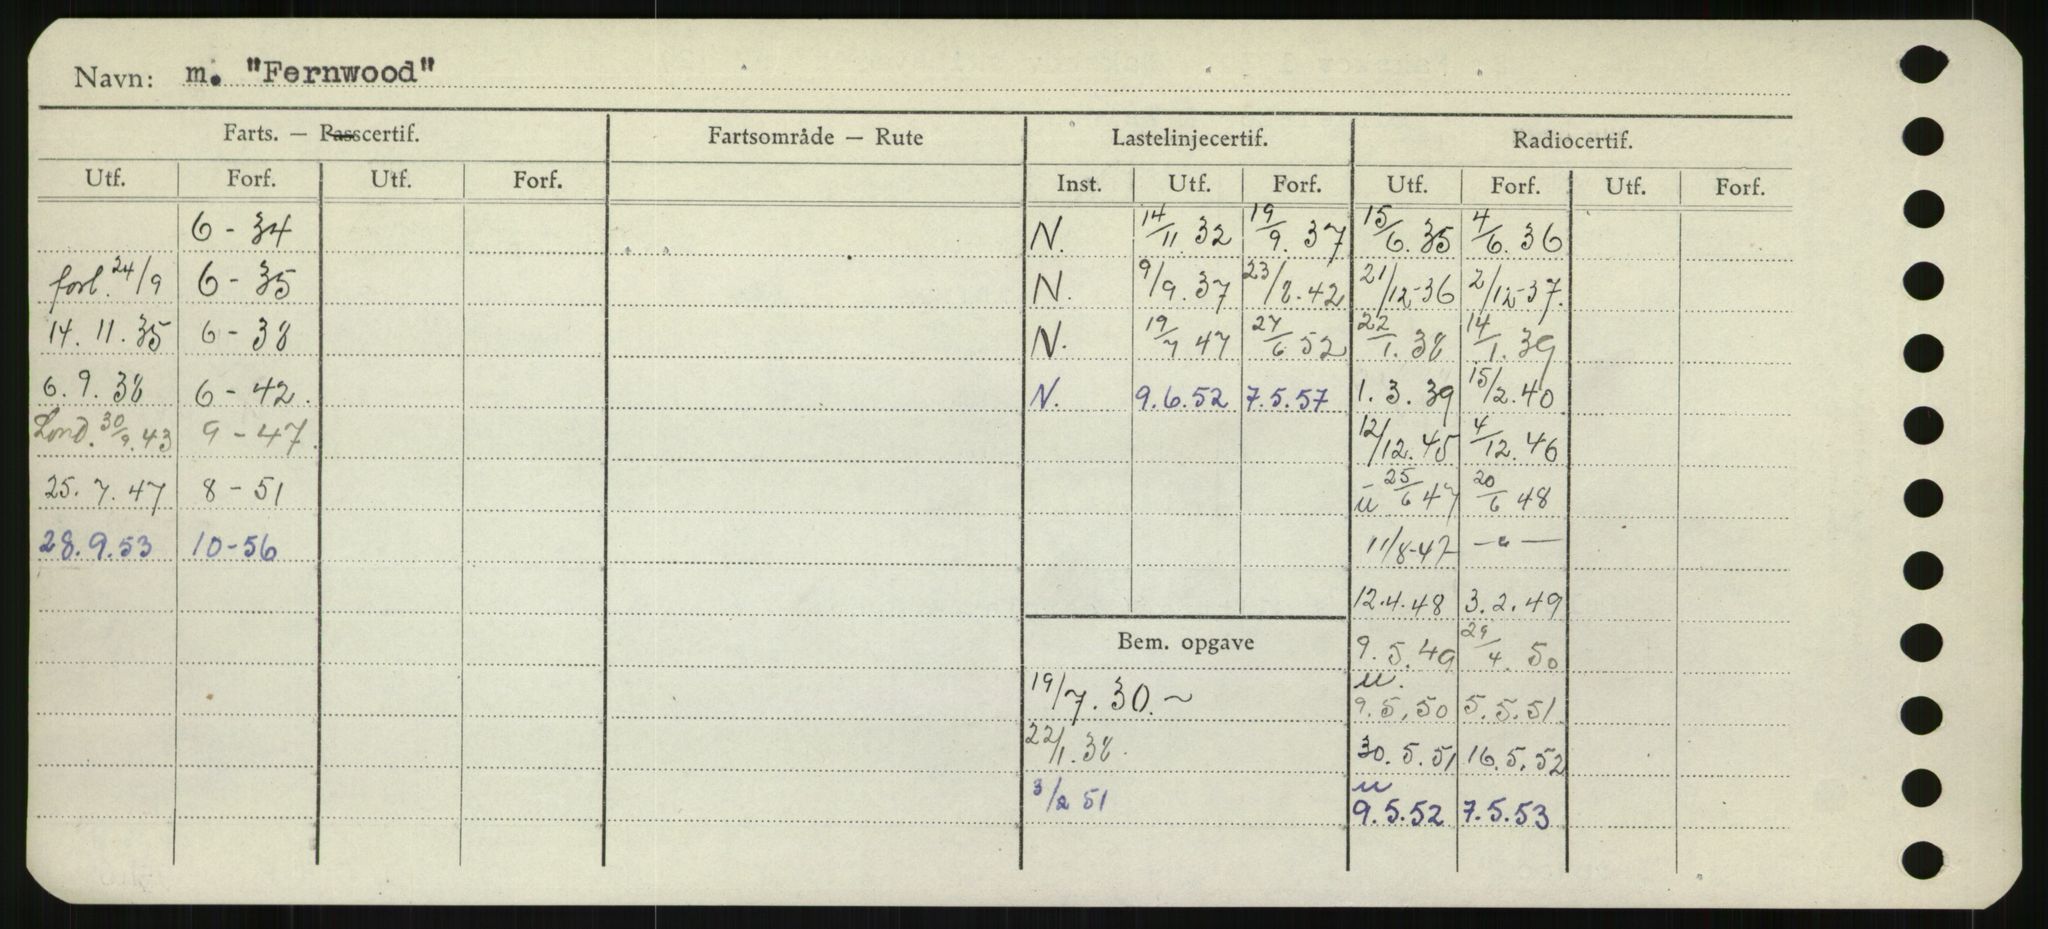 Navn: m. "Fernwood"
Farts. — Passcertif. Fartsområde — Rute Lastelinjecertif. Radiocertif.
Utf. Forf. Utf. Forf. Inst. Utf. Forf. Utf. Forf. Utf. Forf.
6 - 34 N. 14/11. 32 19/9. 37 15/6. 35 4/6. 36
forl. 24/9 6 - 35 N. 9/9. 37 23/8. 42 21/12-36 2/12-37.
14. 11. 35 6 - 38 N. 19/7 47 27/6 52 22/1. 38 14/1. 39
6. 9. 38 6 - 42. N. 9.6.52 7.5.57 1. 3. 39 15/2. 40
Lond. 30/9. 43 9 - 47. 12/12. 45 4/12. 46
25. 7. 47 8 - 51 u 25/6 47 20/6 48
28. 9. 53 10-56 11/8-47 — " —
12.4.48 3. 2. 49
Bem. opgave 9. 5. 49 29/4. 50
19/7. 30. ~ u. 9. 5. 50 5. 5. 51
22/1. 38. 30. 5. 51 16. 5. 52
3/2 51 u 9. 5. 52 7. 5. 53